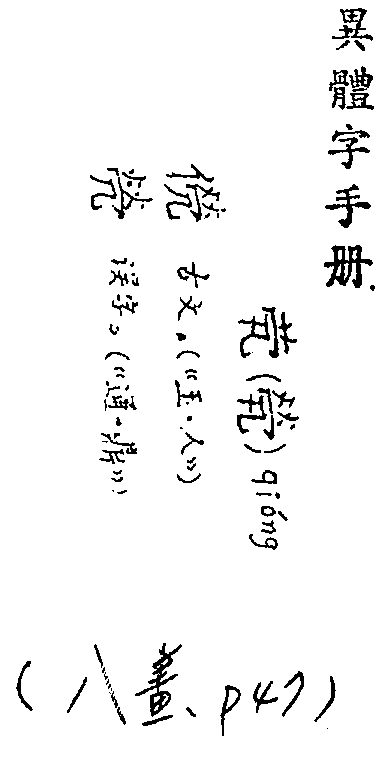 異體字手册
茕(煢)qióng
古文。(《玉·人》)
误字。(《通·
(八畫、p47)